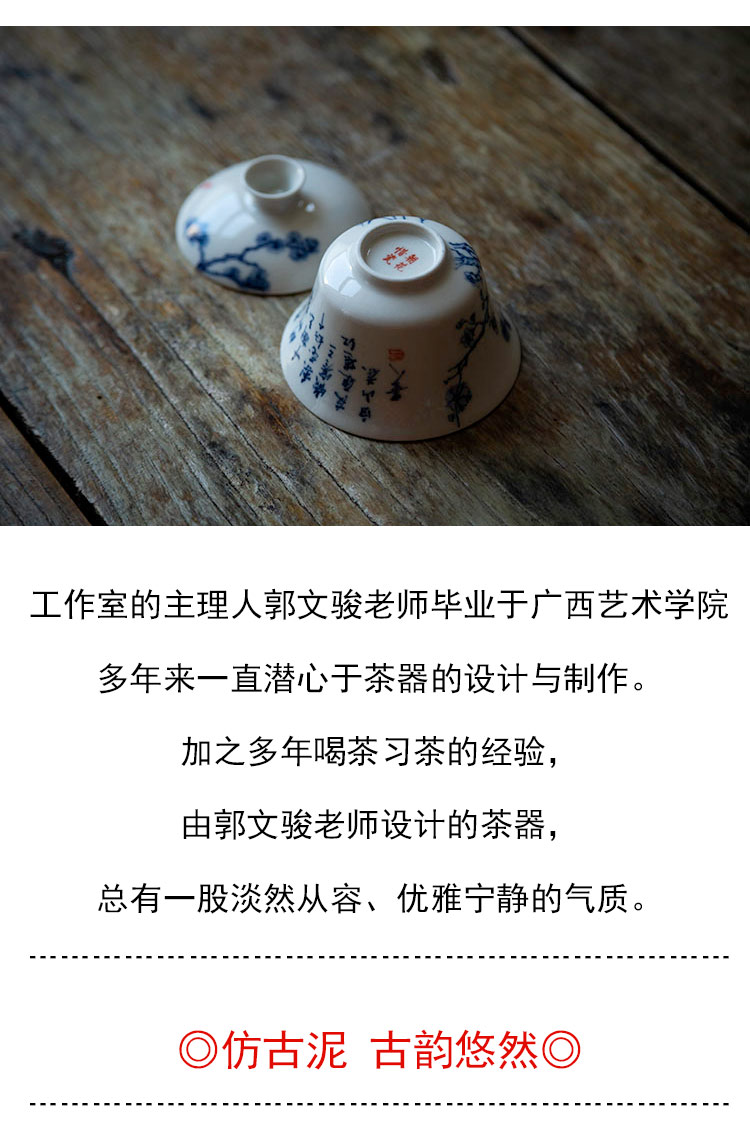 工作室的主理人郭文骏老师毕业于广西艺术学院
多年来一直潜心于茶器的设计与制作。
加之多年喝茶习茶的经验,
由郭文骏老师设计的茶器,
总有一股淡然从容、优雅宁静的气质。
◎仿古泥 古韵悠然◎